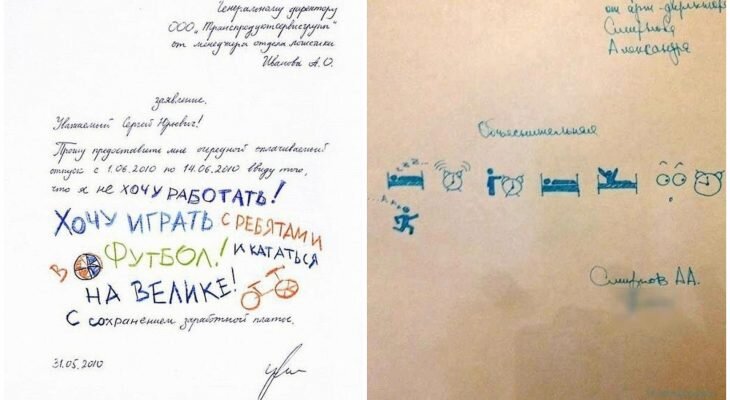 Генеральному директору
ООО „Транспродуктсервисгрупп"
от менеджера отдела логистики
Иванова А.О.
заявление.
Уважаемый Сергей Юрьевич!
Прошу предоставить мне очередной оплачиваемый
отпуск с 1.06.2010 по 14.06.2010 ввиду того,
что я не ХОЧУ РАБОТАТЬ!
ХОЧУ ИГРАТЬ С РЕБЯТАМИ
В ФУТБОЛ! И КАТАТЬСЯ
НА ВЕЛИКЕ!
С сохранением заработной платы.
31.05.2010
от арт-директора
Смирнова
Александра
Объяснительная
zzz...
Смирнов АА.